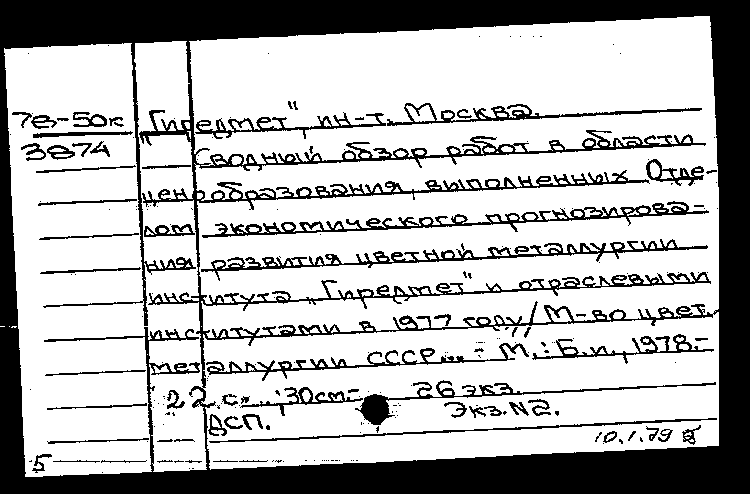 78-50к "Гиредмет", ин-т. Москва.
3874 Сводный обзор работ в области
ценообразования, выполненных Отде-
лом экономического прогнозирова-
ния развития цветной металлургии
института "Гиредмет" и отраслевыми
институтами в 1977 году/М-во цвет.
металлургии СССР... - М.: Б.и., 1978.-
22 с. ..; 30см.- 26 экз.
ДСП. Экз. N2.
10.1.79
5